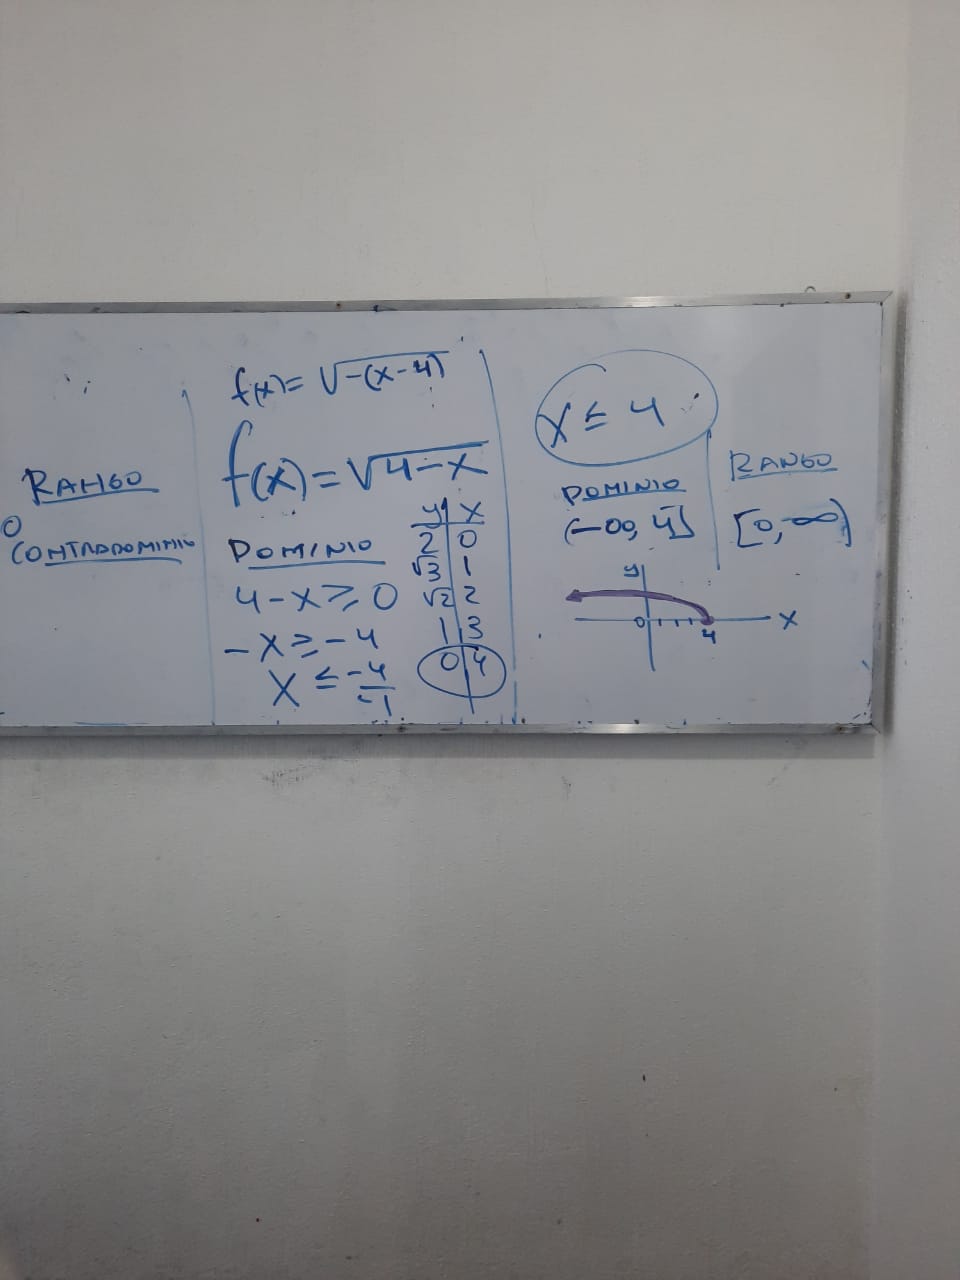 RANGO
O
CONTRADOMINIO
f(x)= √-(x-4)
f(x)=√4-x
DOMINIO
4-x≥0
-x≥-4
x ≤ -4/-1
y x
2 0
√3 1
√2 2
1 3
0 4
x ≤ 4
DOMINIO
(-∞, 4]
RANGO
[0, ∞)
y
0
4
x